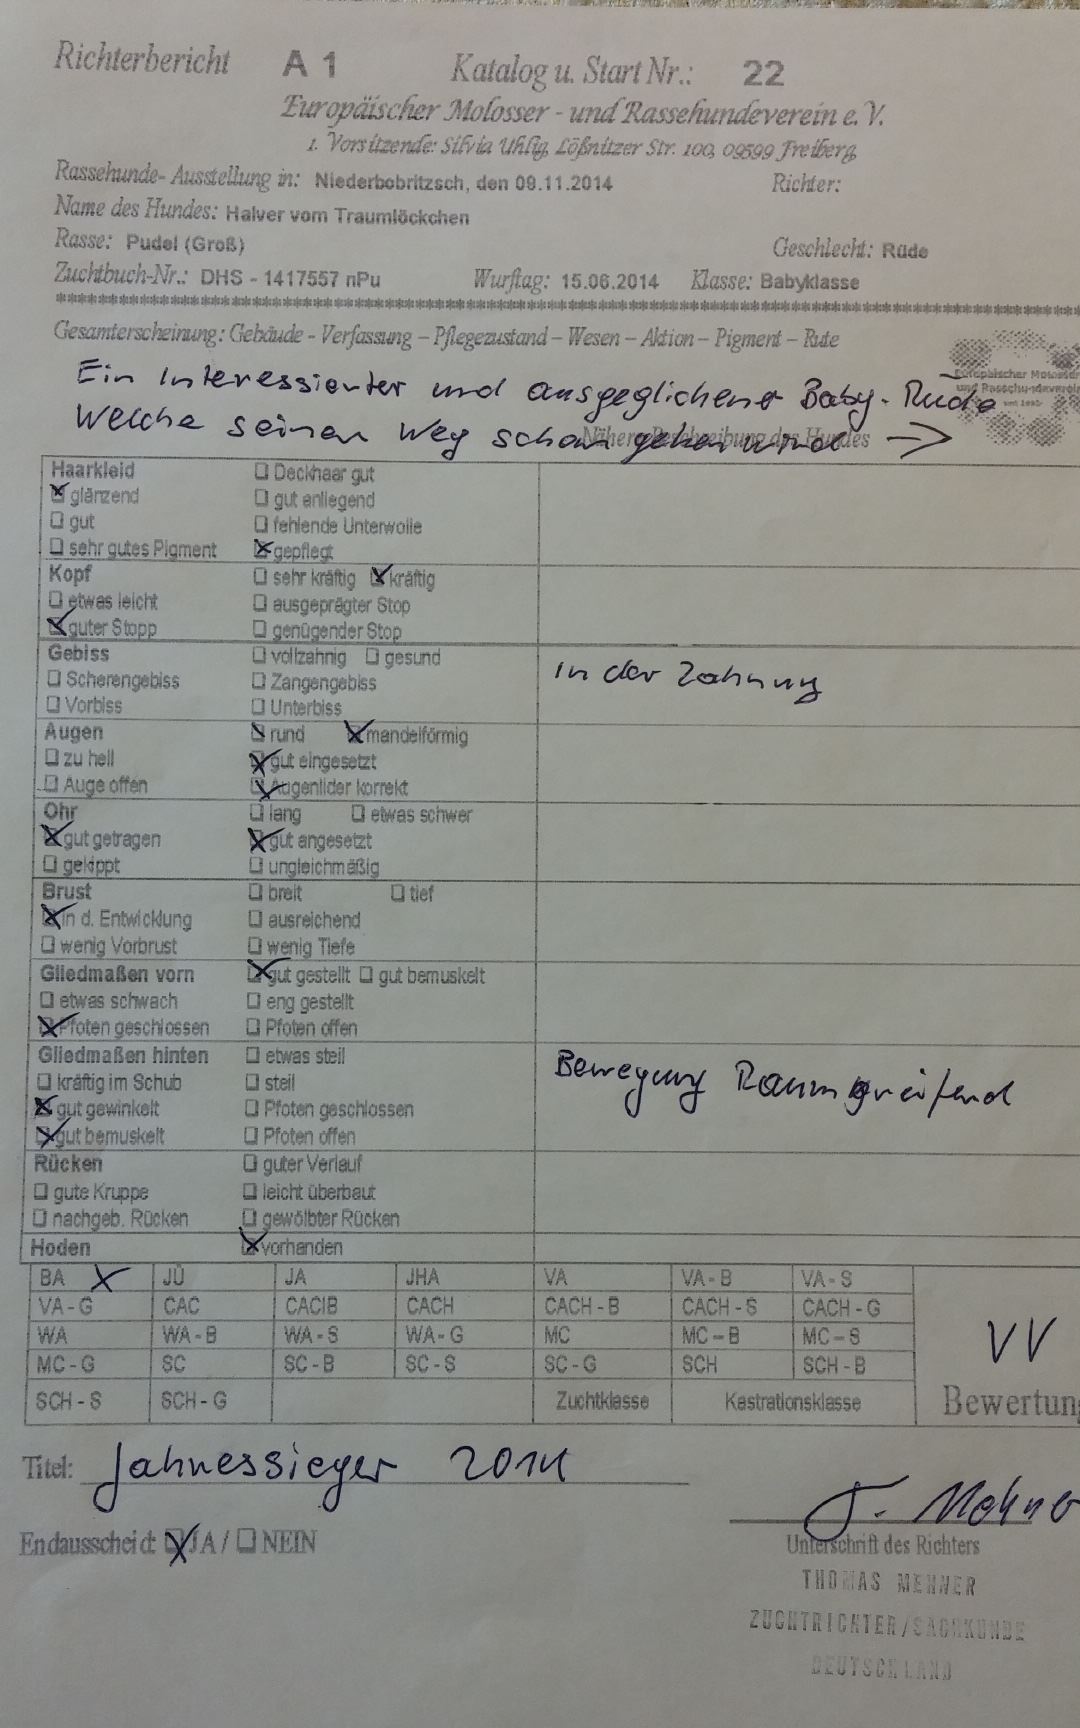 Richterbericht A 1 Katalog u. Start Nr.: 22
Europäischer Molosser - und Rassehundeverein e. V.
1. Vorsitzende: Silvia Uhlig, Lößnitzer Str. 100, 09599 Freiberg
Rassehunde- Ausstellung in: Niederbobritzsch, den 09.11.2014 Richter:
Name des Hundes: Halver vom Traumlöckchen
Rasse: Pudel (Groß) Geschlecht: Rüde
Zuchtbuch-Nr.: DHS - 1417557 nPu Wurftag: 15.06.2014 Klasse: Babyklasse
Gesamterscheinung: Gebäude - Verfassung – Pflegezustand – Wesen – Aktion – Pigment – Rute
Europäischer Molosser
und Rassehundeverein
Ein Interessierter und ausgeglichener Baby-Rüde
Welche seinen Weg schon gehen wird →
Nähere Beschreibung des Hundes
Haarkleid ☐ Deckhaar gut
☒ glänzend ☐ gut anliegend
☐ gut ☐ fehlende Unterwolle
☐ sehr gutes Pigment ☒ gepflegt
Kopf ☐ sehr kräftig ☒ kräftig
☐ etwas leicht ☐ ausgeprägter Stop
☒ guter Stopp ☐ genügender Stop
Gebiss ☐ vollzahnig ☐ gesund in der Zahnung
☐ Scherengebiss ☐ Zangengebiss
☐ Vorbiss ☐ Unterbiss
Augen ☒ rund ☒ mandelförmig
☐ zu hell ☒ gut eingesetzt
☐ Auge offen ☒ Augenlider korrekt
Ohr ☐ lang ☐ etwas schwer
☒ gut getragen ☒ gut angesetzt
☐ gekippt ☐ ungleichmäßig
Brust ☐ breit ☐ tief
☒ in d. Entwicklung ☐ ausreichend
☐ wenig Vorbrust ☐ wenig Tiefe
Gliedmaßen vorn ☒ gut gestellt ☐ gut bemuskelt
☐ etwas schwach ☐ eng gestellt
☒ Pfoten geschlossen ☐ Pfoten offen
Gliedmaßen hinten ☐ etwas steil
☐ kräftig im Schub ☐ steil Bewegung Raumgreifend
☒ gut gewinkelt ☐ Pfoten geschlossen
☒ gut bemuskelt ☐ Pfoten offen
Rücken ☐ guter Verlauf
☐ gute Kruppe ☐ leicht überbaut
☐ nachgeb. Rücken ☐ gewölbter Rücken
Hoden ☒ vorhanden
BA X JÜ JA JHA VA VA - B VA - S
VA - G CAC CACIB CACH CACH - B CACH - S CACH - G
WA WA - B WA - S WA - G MC MC – B MC – S VV
MC - G SC SC - B SC - S SC - G SCH SCH - B
SCH - S SCH - G Zuchtklasse Kastrationsklasse Bewertung
Titel: Jahressieger 2014
T. Mehner
Endausscheid: ☒ JA / ☐ NEIN Unterschrift des Richters
THOMAS MEHNER
ZUCHTRICHTER/SACHKUNDE
DEUTSCHLAND